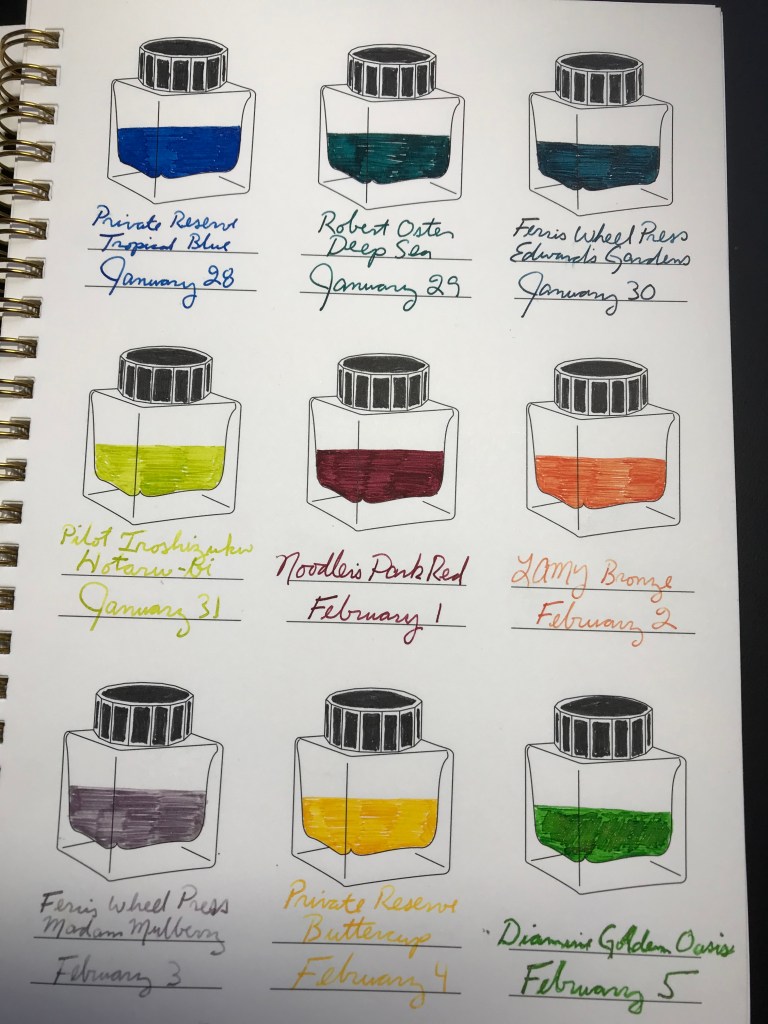 Private Reserve
Tropical Blue
January 28
Robert Oster
Deep Sea
January 29
Ferris Wheel Press
Edwards Gardens
January 30
Pilot Iroshizuku
Hotaru-Bi
January 31
Noodler's Park Red
February 1
LAMY Bronze
February 2
Ferris Wheel Press
Madam Mulberry
February 3
Private Reserve
Buttercup
February 4
Diamine Golden Oasis
February 5